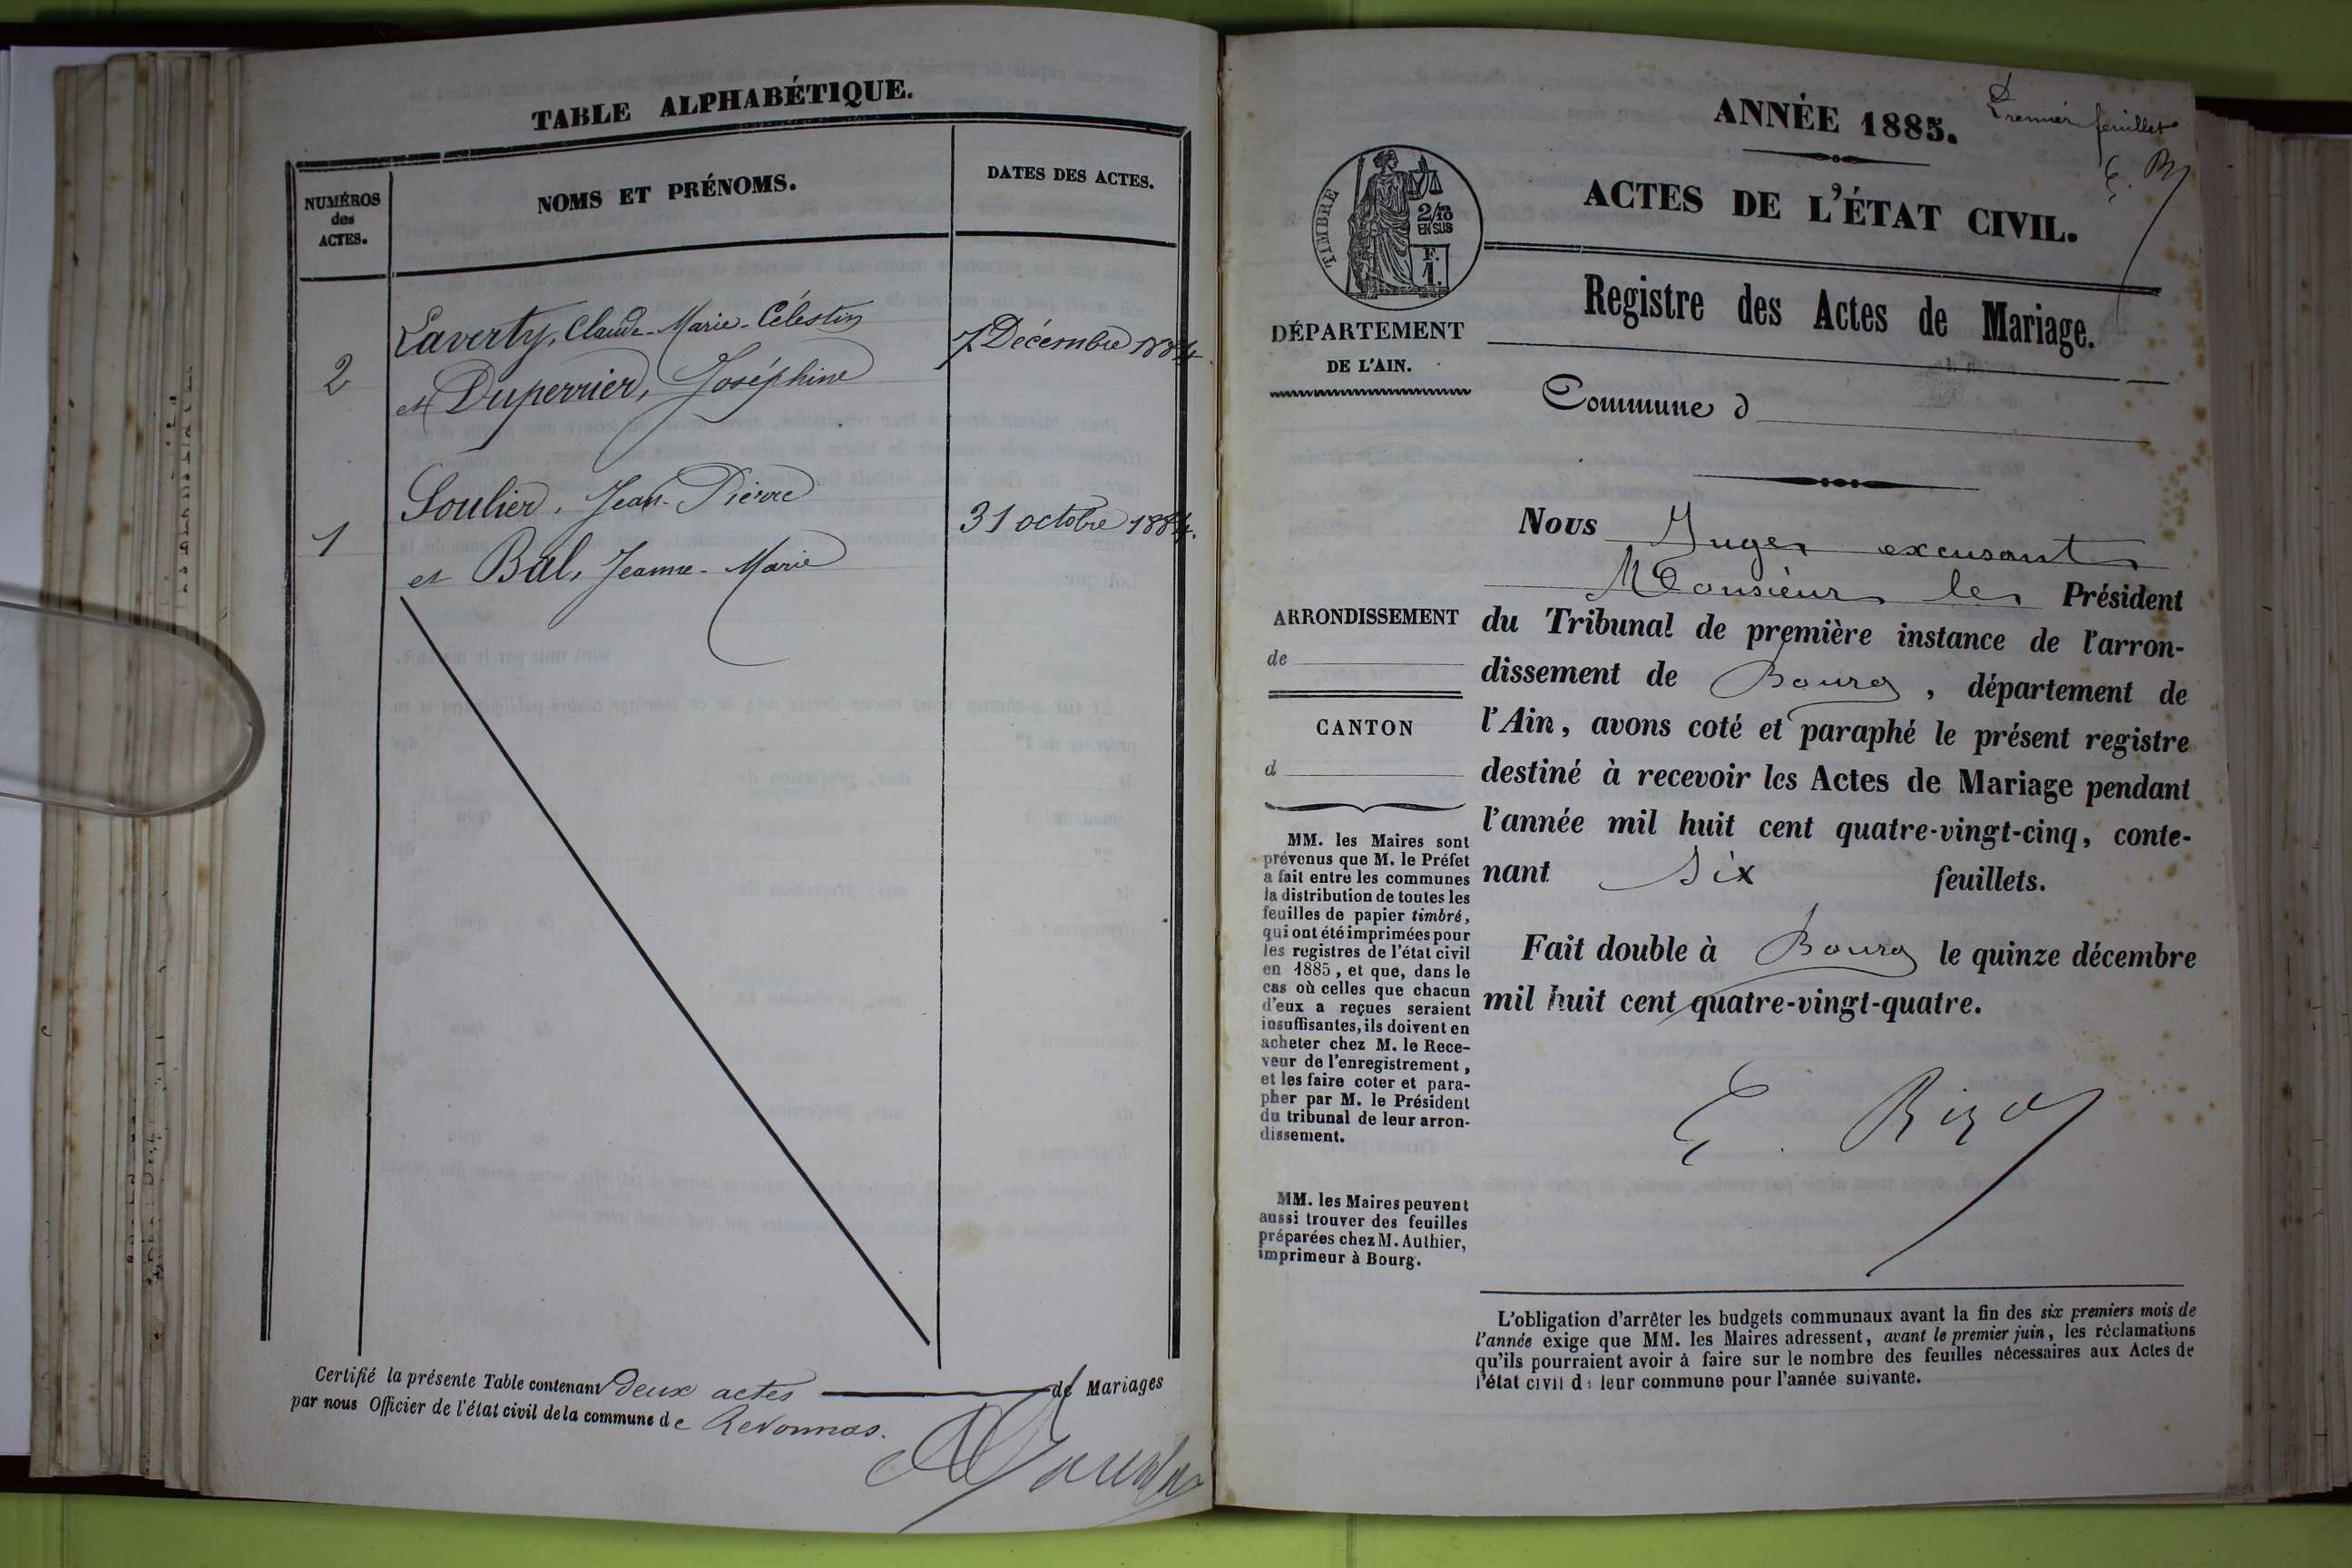 TABLE ALPHABÉTIQUE.
NUMÉROS
des
ACTES.
NOMS ET PRÉNOMS.
DATES DES ACTES.
2
Laverty, Claude-Marie-Célestin
et Duperrier, Joséphine
7 Décembre 1884
1
Soulier, Jean-Pierre
et Bal, Jeanne-Marie
31 octobre 1884.
Certifié la présente Table contenant deux actes de Mariages
par nous Officier de l'état civil de la commune de Revonnas.
Premier feuillet
E. B
ANNÉE 1885.
ACTES DE L'ÉTAT CIVIL.
TIMBRE
2/10
EN SUS
F.
1.
DÉPARTEMENT
DE L'AIN.
Registre des Actes de Mariage.
Commune d
Nous Juge excusant
Monsieur le Président
du Tribunal de première instance de l'arron-
dissement de Bourg, département de
l'Ain, avons coté et paraphé le présent registre
destiné à recevoir les Actes de Mariage pendant
l'année mil huit cent quatre-vingt-cinq, conte-
nant six feuillets.
Fait double à Bourg le quinze décembre
mil huit cent quatre-vingt-quatre.
E.
ARRONDISSEMENT
de
CANTON
d
MM. les Maires sont
prévenus que M. le Préfet
a fait entre les communes
la distribution de toutes les
feuilles de papier timbré,
qui ont été imprimées pour
les registres de l'état civil
en 1885, et que, dans le
cas où celles que chacun
d'eux a reçues seraient
insuffisantes, ils doivent en
acheter chez M. le Rece-
veur de l'enregistrement,
et les faire coter et para-
pher par M. le Président
du tribunal de leur arron-
dissement.
MM. les Maires peuvent
aussi trouver des feuilles
préparées chez M. Authier,
imprimeur à Bourg.
L'obligation d'arrêter les budgets communaux avant la fin des six premiers mois de
l'année exige que MM. les Maires adressent, avant le premier juin, les réclamations
qu'ils pourraient avoir à faire sur le nombre des feuilles nécessaires aux Actes de
l'état civil de leur commune pour l'année suivante.